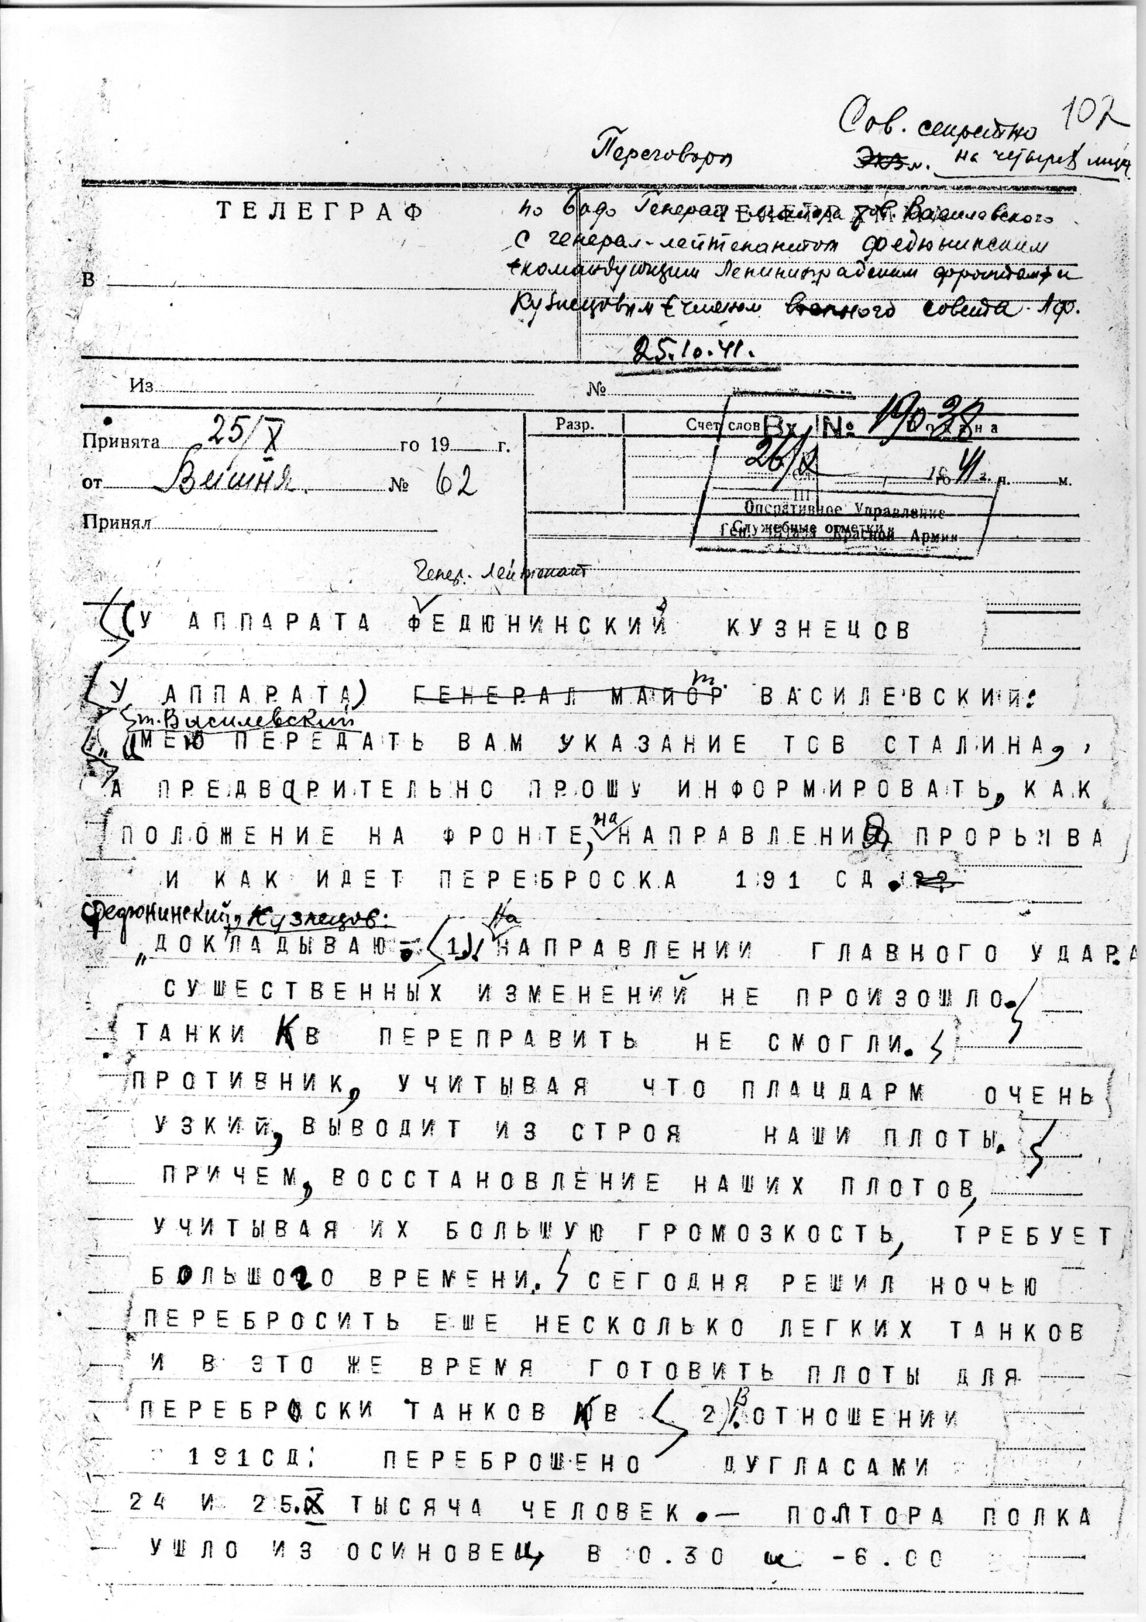 102
Сов. секретно
Переговоры
Экз. на четырех лист.
ТЕЛЕГРАФ
по Бодо Генерал майора тов. Василевского
с генерал-лейтенантом Федюнинским
(командующим Ленинградским фронтом) и
В
Кузнецовым (членом военного совета ЛФ.
25.10.41.
Из №
Принята 25/X го 19 г.
Разр. Счет слов
Вх № 19038
26/X 1941 г.
от Вишня. № 62
Принял
III
Оперативное Управление
Служебные отметки
Ген. Штаба Красной Армии
Генер. лейтенант
(У АППАРАТА ФЕДЮНИНСКИЙ КУЗНЕЦОВ
(У АППАРАТА) ГЕНЕРАЛ МАЙОР т. ВАСИЛЕВСКИЙ:
т. Василевский
ИМЕЮ ПЕРЕДАТЬ ВАМ УКАЗАНИЕ ТОВ СТАЛИНА,
А ПРЕДВАРИТЕЛЬНО ПРОШУ ИНФОРМИРОВАТЬ, КАК
ПОЛОЖЕНИЕ НА ФРОНТЕ, на НАПРАВЛЕНИИ ПРОРЫВА
И КАК ИДЕТ ПЕРЕБРОСКА 191 СД.
Федюнинский, Кузнецов:
„ДОКЛАДЫВАЮ: 1) На НАПРАВЛЕНИИ ГЛАВНОГО УДАРА
СУШЕСТВЕННЫХ ИЗМЕНЕНИЙ НЕ ПРОИЗОШЛО.
ТАНКИ КВ ПЕРЕПРАВИТЬ НЕ СМОГЛИ.
ПРОТИВНИК, УЧИТЫВАЯ ЧТО ПЛАЦДАРМ ОЧЕНЬ
УЗКИЙ, ВЫВОДИТ ИЗ СТРОЯ НАШИ ПЛОТЫ.
ПРИЧЕМ, ВОССТАНОВЛЕНИЕ НАШИХ ПЛОТОВ,
УЧИТЫВАЯ ИХ БОЛЬШУЮ ГРОМОЗКОСТЬ, ТРЕБУЕТ
БОЛЬШОГО ВРЕМЕНИ. СЕГОДНЯ РЕШИЛ НОЧЬЮ
ПЕРЕБРОСИТЬ ЕШЕ НЕСКОЛЬКО ЛЕГКИХ ТАНКОВ
И В ЭТО ЖЕ ВРЕМЯ ГОТОВИТЬ ПЛОТЫ ДЛЯ
ПЕРЕБРОСКИ ТАНКОВ КВ 2) В ОТНОШЕНИИ
191СД: ПЕРЕБРОШЕНО ДУГЛАСАМИ
24 И 25.X ТЫСЯЧА ЧЕЛОВЕК.— ПОЛТОРА ПОЛКА
УШЛО ИЗ ОСИНОВЕЦ В 0.30 и -6.00